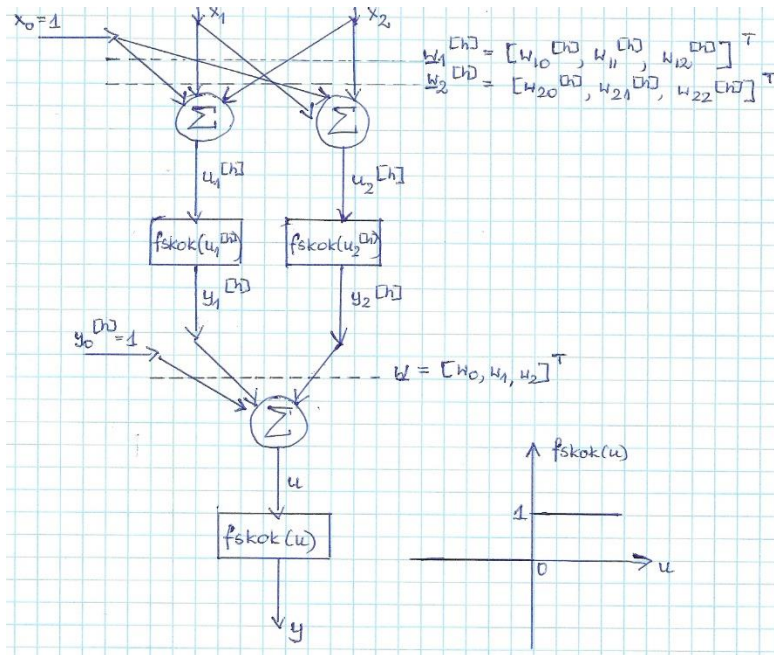 x₀=1
x₁
x₂
w₁^[h] = [w₁₀^[h], w₁₁^[h], w₁₂^[h]]^T
w₂^[h] = [w₂₀^[h], w₂₁^[h], w₂₂^[h]]^T
Σ
Σ
u₁^[h]
u₂^[h]
fskok(u₁^[h])
fskok(u₂^[h])
y₁^[h]
y₂^[h]
y₀^[h]=1
w = [w₀, w₁, w₂]^T
Σ
u
fskok(u)
y
fskok(u)
1
0
u